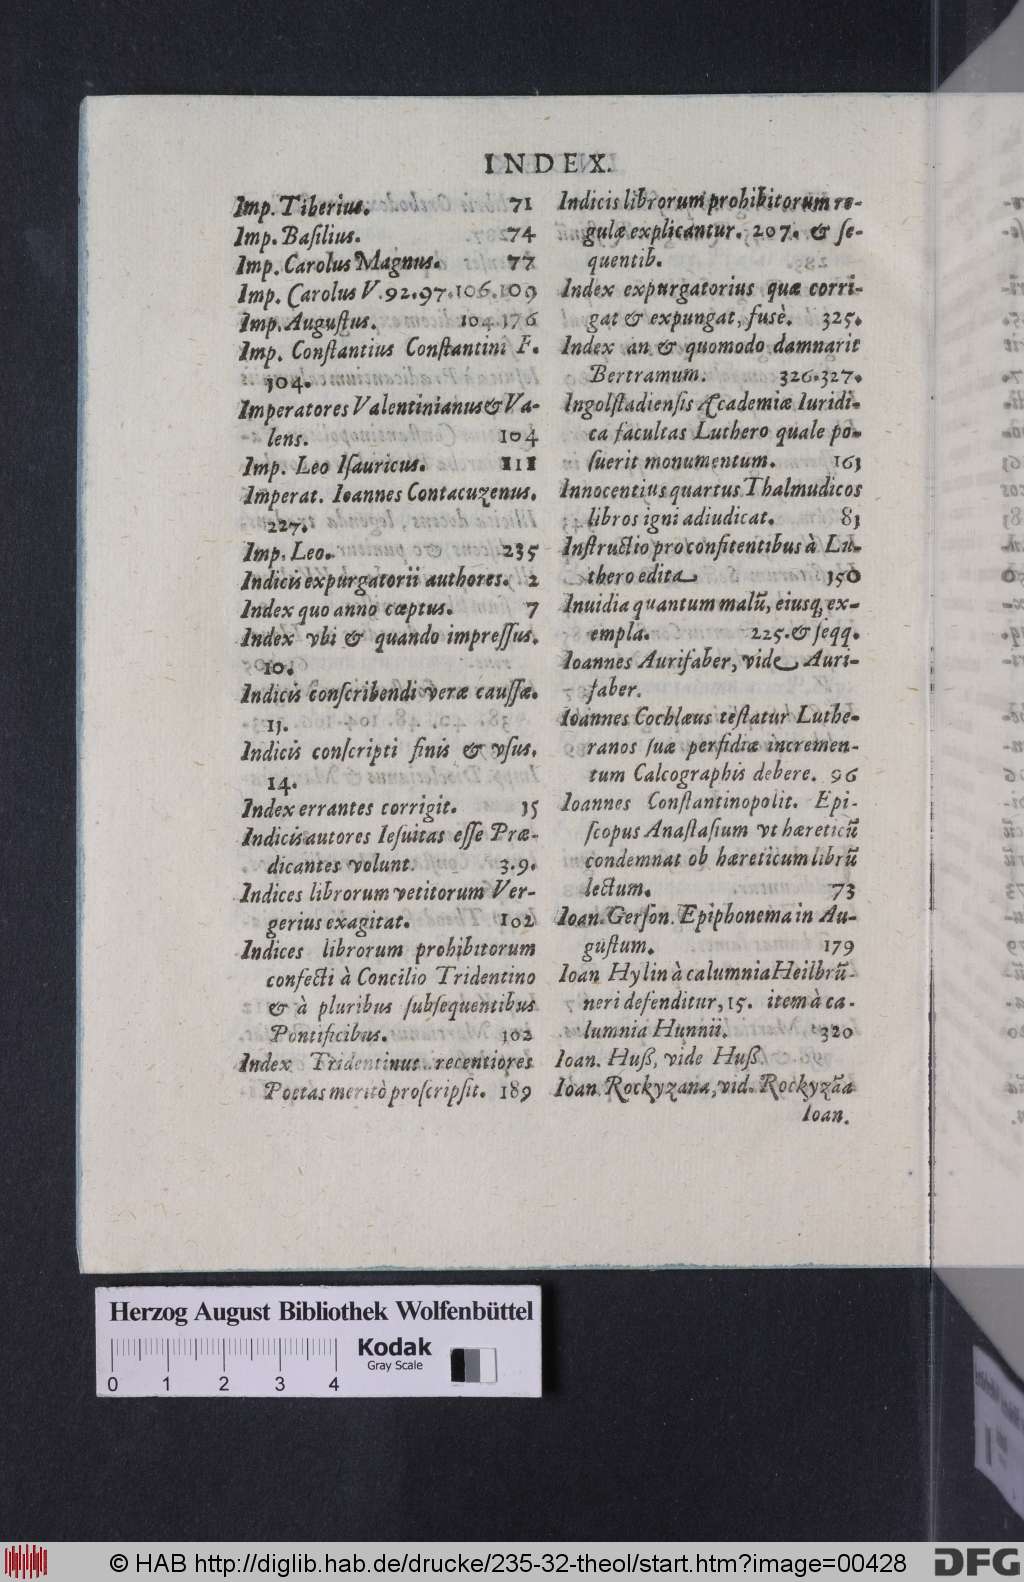 INDEX.
Imp. Tiberius. 71
Imp. Basilius. 74
Imp. Carolus Magnus. 77
Imp. Carolus V. 92.97.106.109
Imp. Augustus. 104.176
Imp. Constantius Constantini F.
104.
Imperatores Valentinianus & Va-
lens. 104
Imp. Leo Iſauricus. 111
Imperat. Ioannes Contacuzenus.
227.
Imp. Leo. 235
Indicis expurgatorii authores. 2
Index quo anno cœptus. 7
Index vbi & quando impreſſus.
10.
Indicis conſcribendi veræ cauſſæ.
11.
Indicis conſcripti finis & vſus.
14.
Index errantes corrigit. 15
Indicis autores Ieſuitas eſſe Præ-
dicantes volunt. 3.9.
Indices librorum vetitorum Ver-
gerius exagitat. 102
Indices librorum prohibitorum
confecti à Concilio Tridentino
& à pluribus ſubſequentibus
Pontificibus. 102
Index Tridentinus recentiores
Poetas meritò proſcripſit. 189
Indicis librorum prohibitorum re-
gulæ explicantur. 207. & ſe-
quentib.
Index expurgatorius quæ corri-
gat & expungat, fusè. 325.
Index an & quomodo damnarit
Bertramum. 326.327.
Ingolſtadienſis Academiæ Iuridi-
ca facultas Luthero quale po-
ſuerit monumentum. 161
Innocentius quartus Thalmudicos
libros igni adiudicat. 81
Inſtructio pro confitentibus à Lu-
thero edita 150
Inuidia quantum malū, eiusq́ ex-
empla. 225. & ſeqq.
Ioannes Aurifaber, vide Auri-
faber.
Ioannes Cochlæus teſtatur Luthe-
ranos ſuæ perfidiæ incremen-
tum Calcographis debere. 96
Ioannes Conſtantinopolit. Epi-
ſcopus Anaſtaſium vt hæreticū
condemnat ob hæreticum librū
lectum. 73
Ioan. Gerſon. Epiphonema in Au-
guſtum. 179
Ioan Hylin à calumnia Heilbrū-
neri defenditur, 15. item à ca-
lumnia Hunnii. 320
Ioan. Huß, vide Huß.
Ioan. Rockyzana, vid. Rockyzāa
Ioan.
Herzog August Bibliothek Wolfenbüttel
Kodak
Gray Scale
0 1 2 3 4
© HAB http://diglib.hab.de/drucke/235-32-theol/start.htm?image=00428
DFG